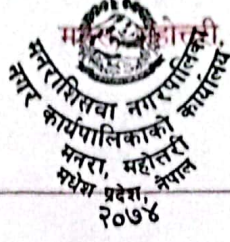 मनराशिसवा नगरपालिका
नगर कार्यपालिकाको कार्यालय
मनरा, महोत्तरी
मधेश प्रदेश, नेपाल
२०७४